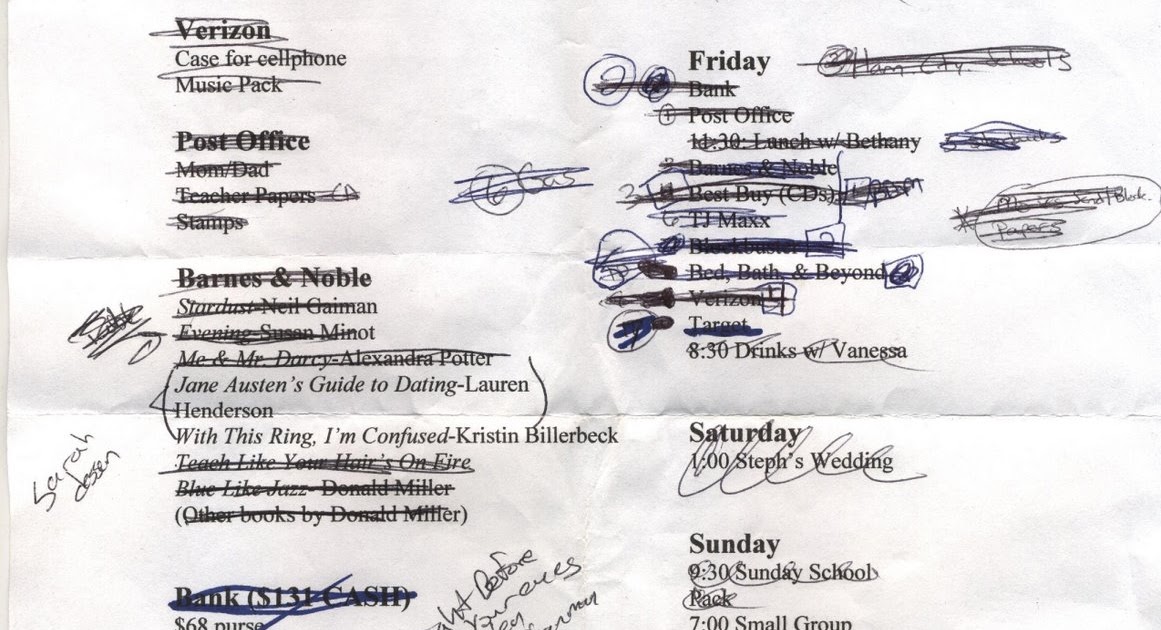 Verizon
Case for cellphone
Music Pack
Post Office
Mom/Dad
Teacher Papers - CA
Stamps
Barnes & Noble
Stardust-Neil Gaiman
Evening-Susan Minot
Me & Mr. Darcy-Alexandra Potter
Jane Austen's Guide to Dating-Lauren
Henderson
With This Ring, I'm Confused-Kristin Billerbeck
Teach Like Your Hair's On Fire
Blue Like Jazz- Donald Miller
(Other books by Donald Miller)
Sarah
Bank ($131 CASH)
$68 purse
before
6 Gas
Friday
Ham. City Schools
2 Bank
1 Post Office
11:30: Lunch w/ Bethany
Barnes & Noble
Best Buy (CDs)
6 TJ Maxx
Blockbuster
Bed, Bath, & Beyond
Verizon
Target
8:30 Drinks w/ Vanessa
Papers
Saturday
1:00 Steph's Wedding
Sunday
9:30 Sunday School
Pack
7:00 Small Group